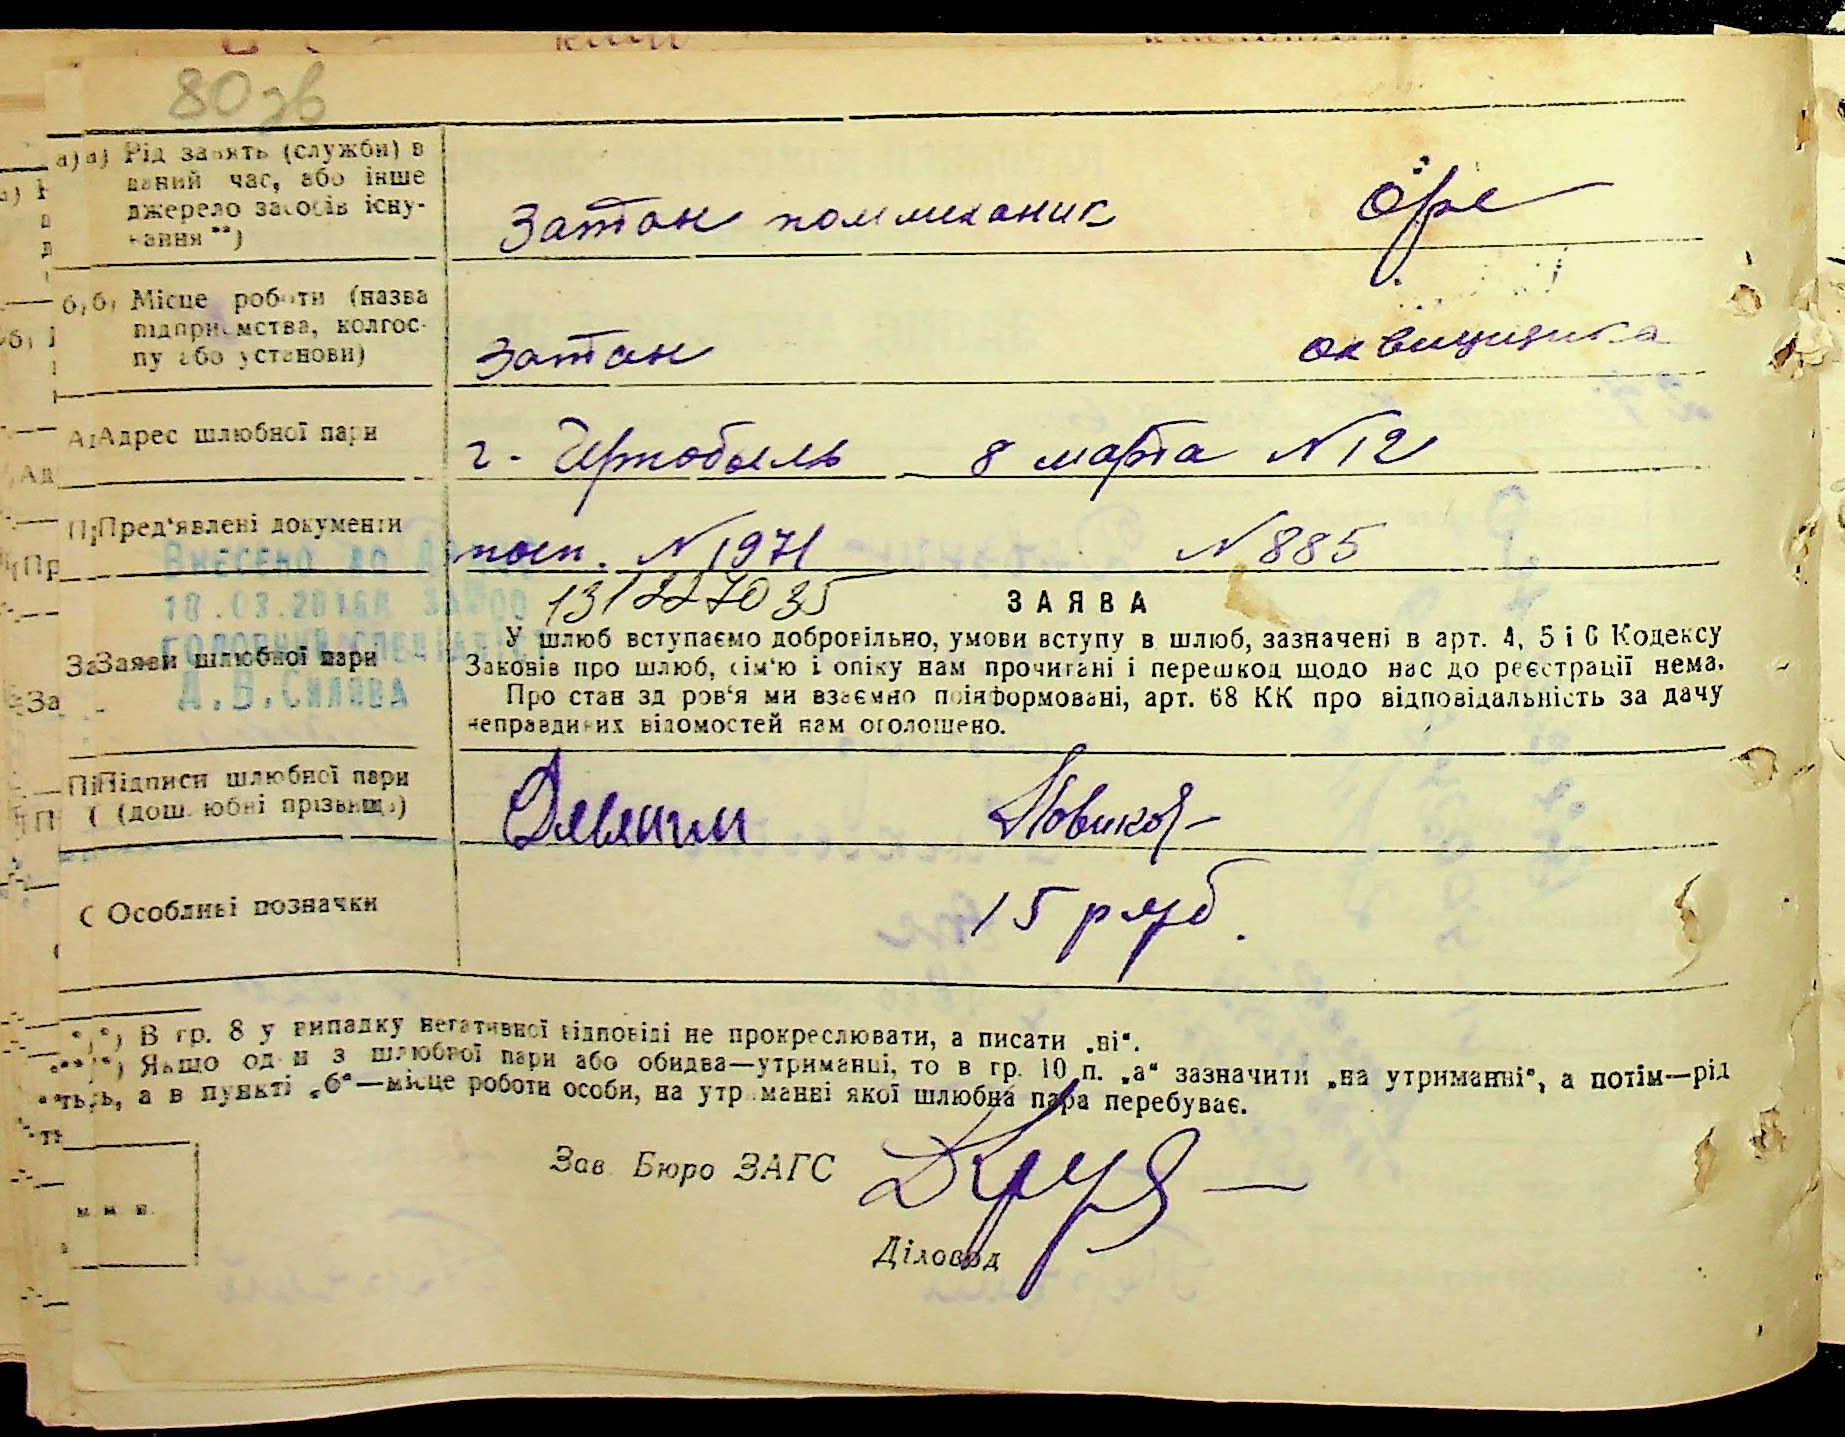 80 зв
а) Рід занять (служби) в
даний час, або інше
джерело засобів існу-
вання **)
Затон поммеханик
б) Місце роботи (назва
підприємства, колгос-
пу або установи)
Затон
Адрес шлюбної пари
г. Чернобыль 8 марта N 12
Пред'явлені документи
посп. N 1971 N 885
Внесено до
18.03.2016р.
головний спеціаліст
131227035
ЗАЯВА
Заяви шлюбної пари
У шлюб вступаємо добровільно, умови вступу в шлюб, зазначені в арт. 4, 5 і 6 Кодексу
Законів про шлюб, сім'ю і опіку нам прочитані і перешкод щодо нас до реєстрації нема.
Про стан здоров'я ми взаємно поінформовані, арт. 68 КК про відповідальність за дачу
неправдивих відомостей нам оголошено.
Підписи шлюбної пари
(дошлюбні прізвища)
Новикова
Особливі позначки
15 руб.
*) В гр. 8 у випадку негативної відповіді не прокреслювати, а писати „ні“.
**) Якщо один з шлюбної пари або обидва—утриманці, то в гр. 10 п. „а“ зазначити „на утриманні“, а потім—рід
занять, а в пункті „б“—місце роботи особи, на утриманні якої шлюбна пара перебуває.
Зав. Бюро ЗАГС
Діловод